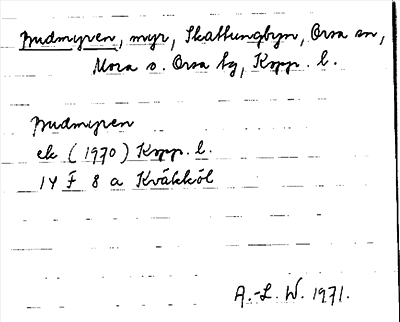 Budmyren, myr, Skattungbyn, Orsa sn,
Mora o. Orsa tg, Kopp. l.
Budmyren
ek (1970) Kopp. l.
14 F 8 a Kväkköl
A.-L. W. 1971.